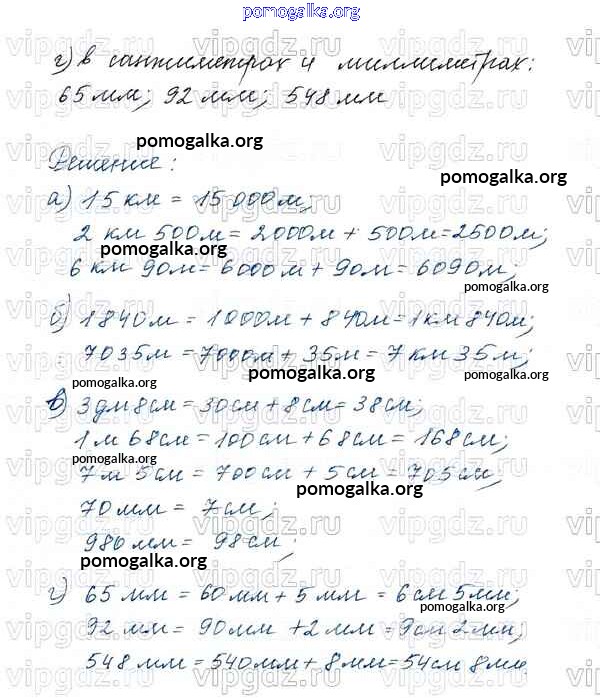 pomogalka.org
г) в сантиметрах и миллиметрах:
65 мм; 92 мм; 548 мм
pomogalka.org
Решение:
pomogalka.org
а) 15 км = 15 000 м;
2 км 500 м = 2000 м + 500 м = 2500 м;
pomogalka.org
6 км 90 м = 6000 м + 90 м = 6090 м;
pomogalka.org
б) 1840 м = 1000 м + 840 м = 1 км 840 м;
7035 м = 7000 м + 35 м = 7 км 35 м;
pomogalka.org
pomogalka.org
в) 3 дм 8 см = 30 см + 8 см = 38 см;
pomogalka.org
1 м 68 см = 100 см + 68 см = 168 см;
pomogalka.org
7 м 5 см = 700 см + 5 см = 705 см;
pomogalka.org
70 мм = 7 см;
980 мм = 98 см;
pomogalka.org
г) 65 мм = 60 мм + 5 мм = 6 см 5 мм;
pomogalka.org
92 мм = 90 мм + 2 мм = 9 см 2 мм;
pomogalka.org
548 мм = 540 мм + 8 мм = 54 см 8 мм
pomogalka.org
vipgdz.ru